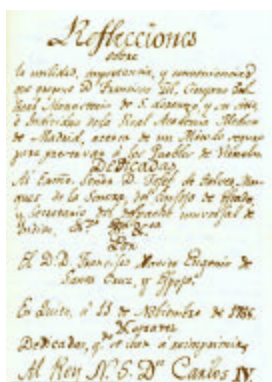 Reflecciones
sobre
la utilidad, importancia, y conveniencias
que propone Dn Francisco Gil, Cirujano del
Real Monasterio de S. Lorenzo, y su sitio,
è Individuo de la Real Academia Medica
de Madrid, acerca de un Metodo seguro
para preservar à los Pueblos de Viruelas
Dedicadas
Al Señor Dn Josef de Galvez, Mar-
ques de la Sonora, del Consejo de Estado,
y Secretario del despacho universal de
Indias,
Por
El D.D. Francisco Xavier Eugenio de
Santa Cruz, y Espejo.
En Quito, à 11 de Noviembre de 1785.
Dedicadas, qe se iban a reimprimir,
Al Rey N. S. Dn Carlos IV.